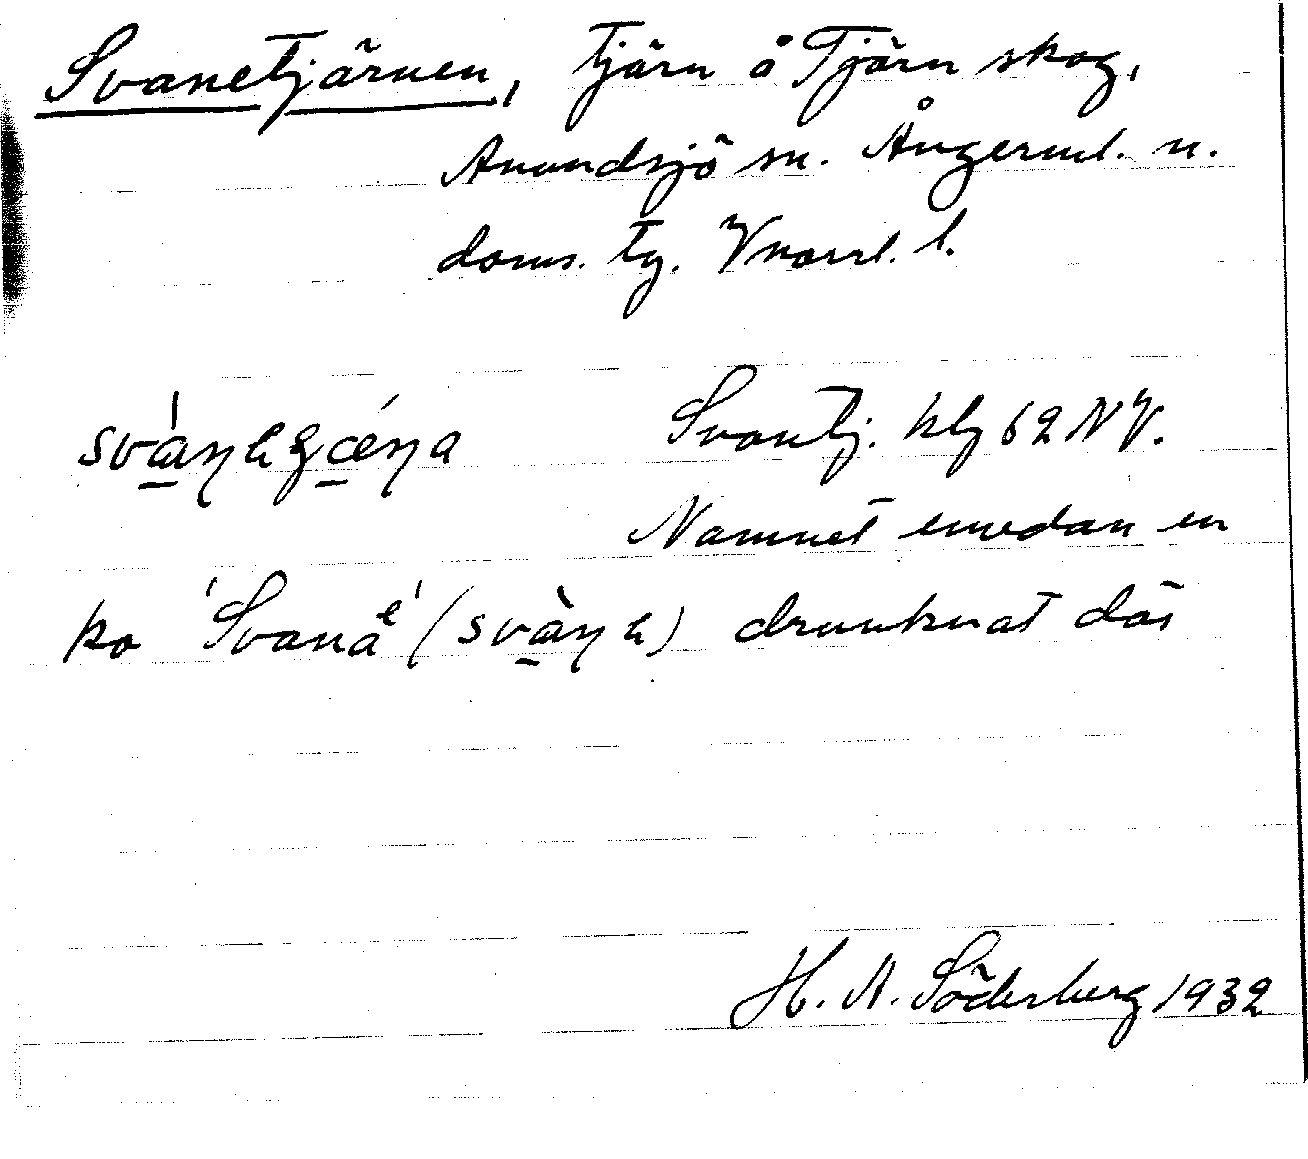 Svanetjärnen, tjärn å Tjärn skog,
Anundsjö sn. Ångerml. n.
doms. tg. Vnorrl. l.
Svantj. kbg 62 NV.
Namnet emedan en
ko 'Svanä' ( ) drunknat där
H. A. Söderberg 1932